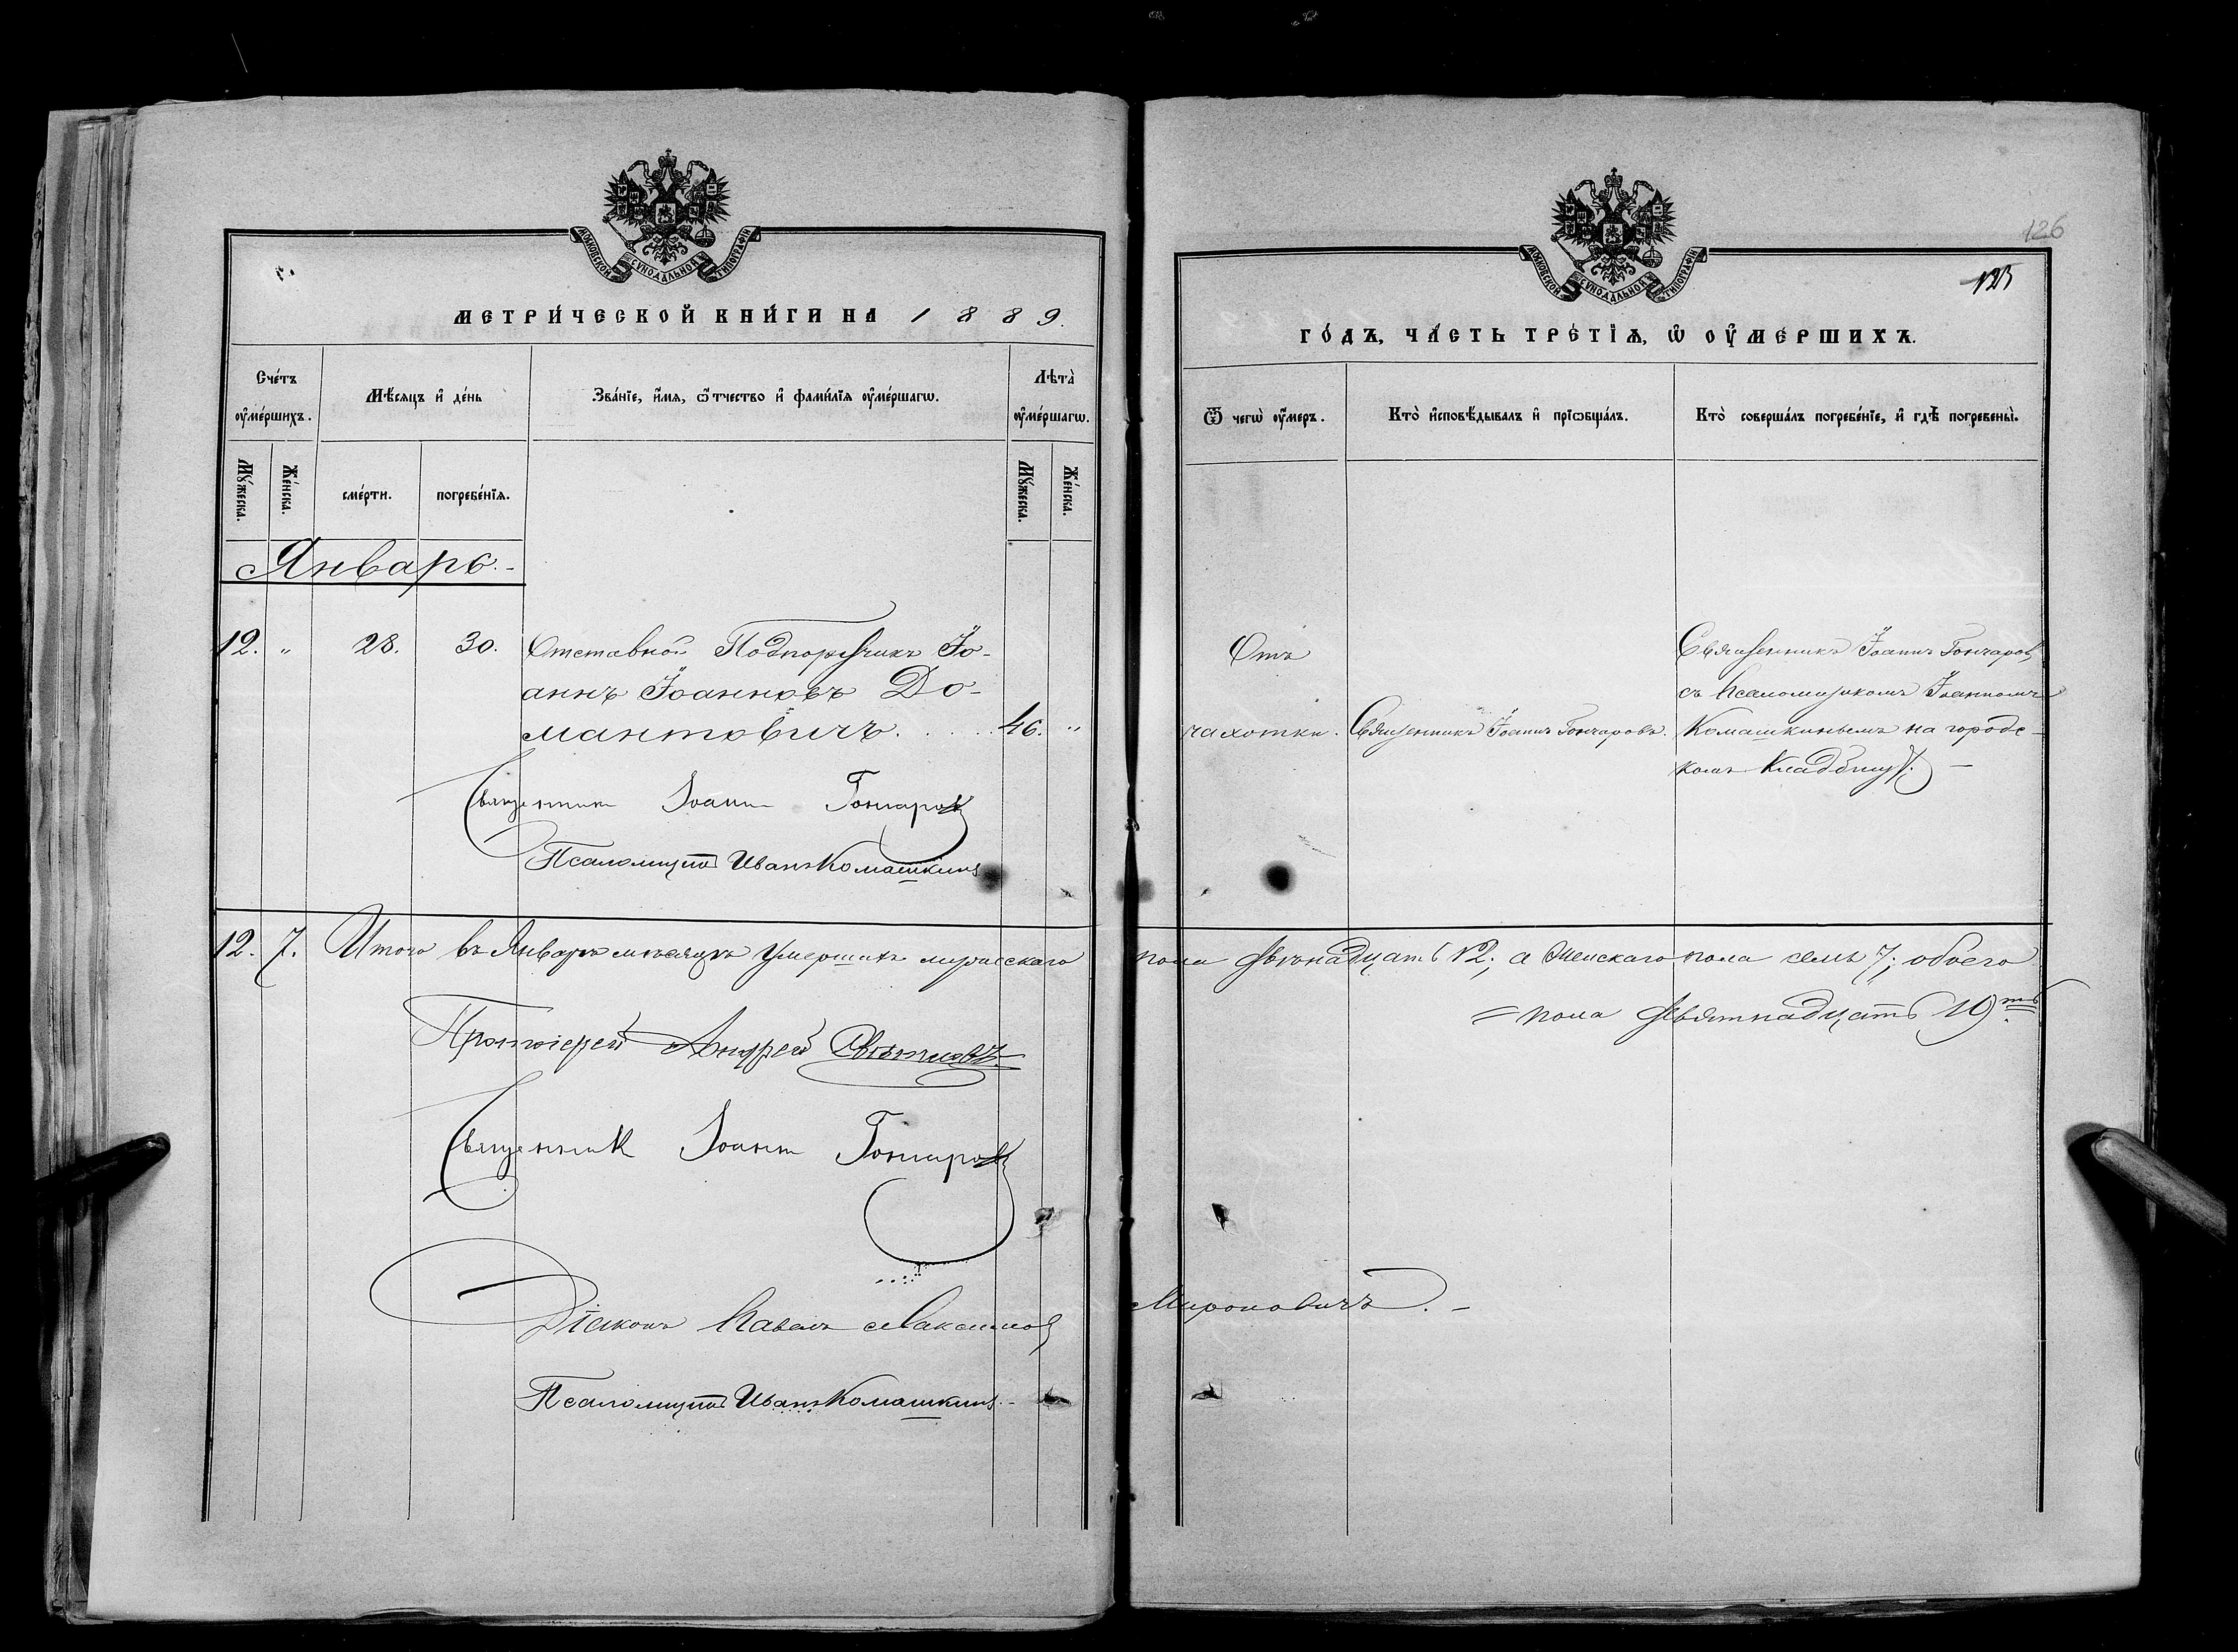 МОСКОВСКОЙ СУНОДАЛЬНОЙ ТИПОГРАФІИ
МЕТРИ́ЧЕСКОЙ КНИ́ГИ НА 1889.
Сче́тъ ᲂу҆ме́ршихъ.
Мѣ́сяцъ и҆ де́нь
Зва́нїе, и҆́мя, ѻ҆́тчество и҆ фами́лїя ᲂу҆ме́ршагѡ.
Лѣта̀ ᲂу҆ме́ршагѡ.
Мꙋ́жеска.
Же́нска.
сме́рти.
погребе́нїѧ.
Мꙋ́жеска.
Же́нска.
Январь.-
12. „ 28. 30. Отставной Подпоручикъ Іо-
аннъ Іоанновъ До-
мантовичъ. . . . . 46. „
Священникъ Іоаннъ Гончаровъ
Псаломщикъ Иванъ Комашкинъ
12. 7. Итого въ Январѣ мѣсяцѣ умершихъ мужескаго
Протоіерей Андрей
Священникъ Іоаннъ Гончаровъ
Діаконъ Павелъ Максимов
Псаломщикъ Иванъ Комашкинъ.-
126
МОСКОВСКОЙ СУНОДАЛЬНОЙ ТИПОГРАФІИ
ГО́ДЪ, ЧА́СТЬ ТРЕ́ТІѦ, Ѡ҆ ОУ҆МЕ́РШИХЪ.
Ѿ чегѡ̀ ᲂу҆́меръ.
Кто̀ и҆сповѣ́дывалъ и҆ прїѡбща́лъ.
Кто̀ соверша́лъ погребе́нїе, и҆ гдѣ̀ погребены̀.
Отъ
чахотки.
Священникъ Іоаннъ Гончаровъ.
Священникъ Іоаннъ Гончаровъ
съ Псаломщикомъ Іоанномъ
Комашкинымъ на городс-
комъ Кладбищѣ. —
пола двѣнадцать 12; а Женскаго пола семь 7; обоего
= пола девятнадцать 19ть
Мироновичъ. -